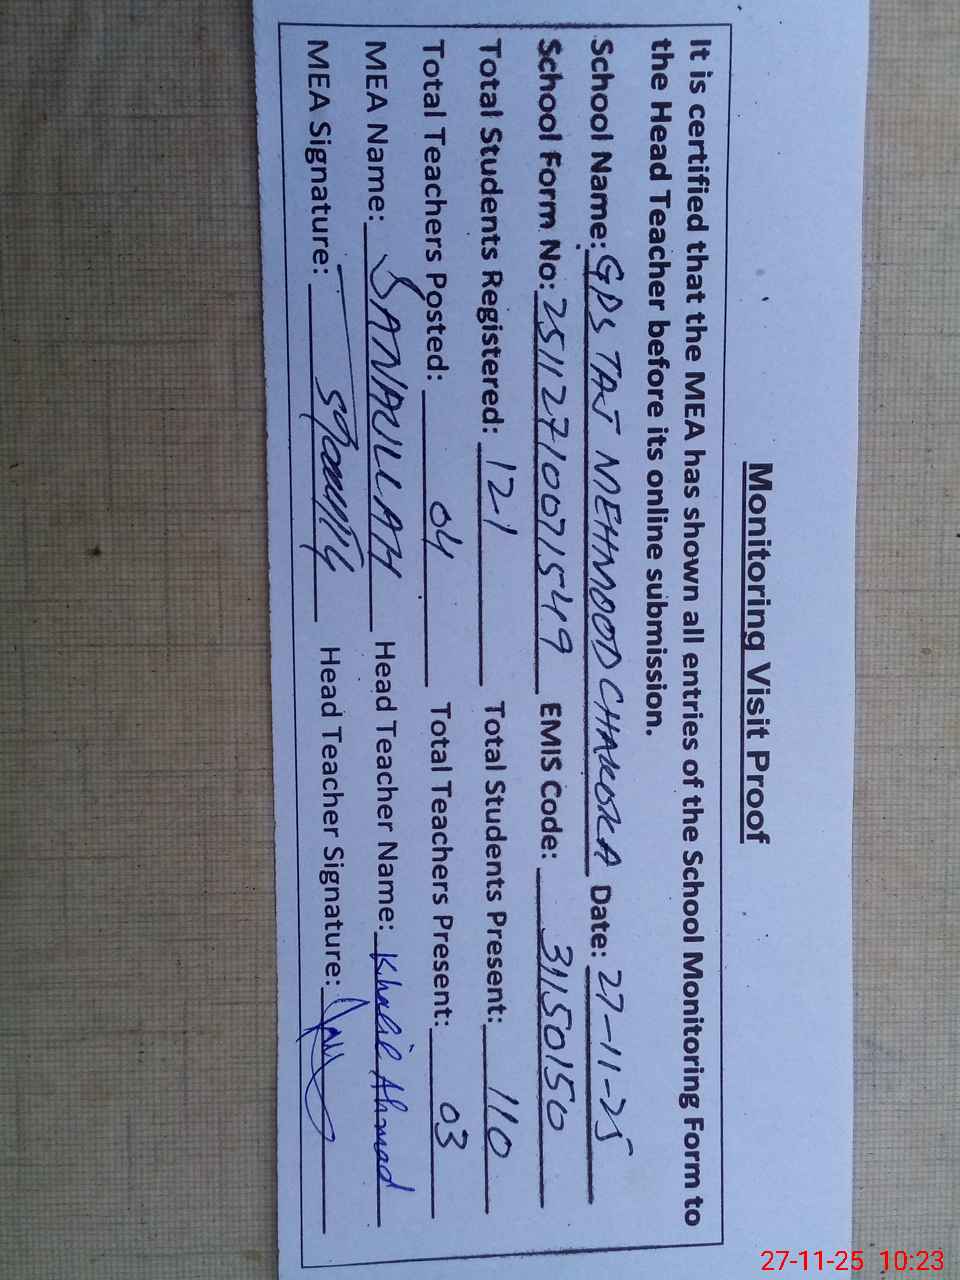 Monitoring Visit Proof
It is certified that the MEA has shown all entries of the School Monitoring Form to
the Head Teacher before its online submission.
School Name: GPS TAJ MEHMOOD CHAKORA Date: 27-11-25
School Form No: 25112710071549 EMIS Code: 31150150
Total Students Registered: 121 Total Students Present: 110
Total Teachers Posted: 04 Total Teachers Present: 03
MEA Name: SANAULLAH Head Teacher Name: Khalil Ahmad
MEA Signature: Head Teacher Signature:
27-11-25 10:23